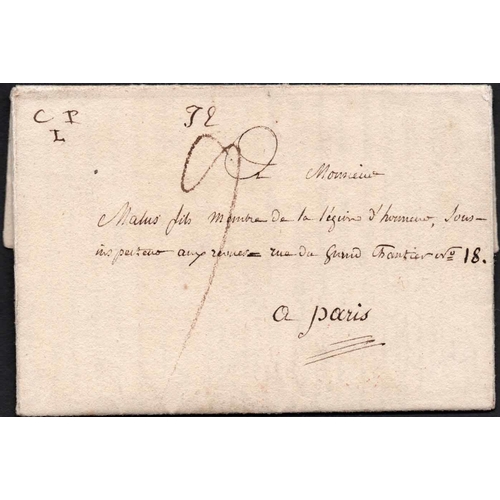 C P
L
T2
Monsieur
Malus fils membre de la légion d'honneur, Sous-
inspecteur aux revues rue du Grand Chantier No 18.
a paris